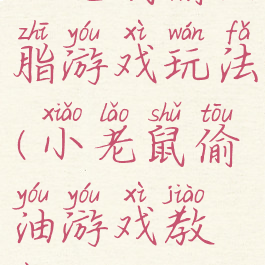 zhī yóu xì wán fǎ
脂游戏玩法
xiǎo lǎo shǔ tōu
(小老鼠偷
yóu yóu xì jiào
油游戏教